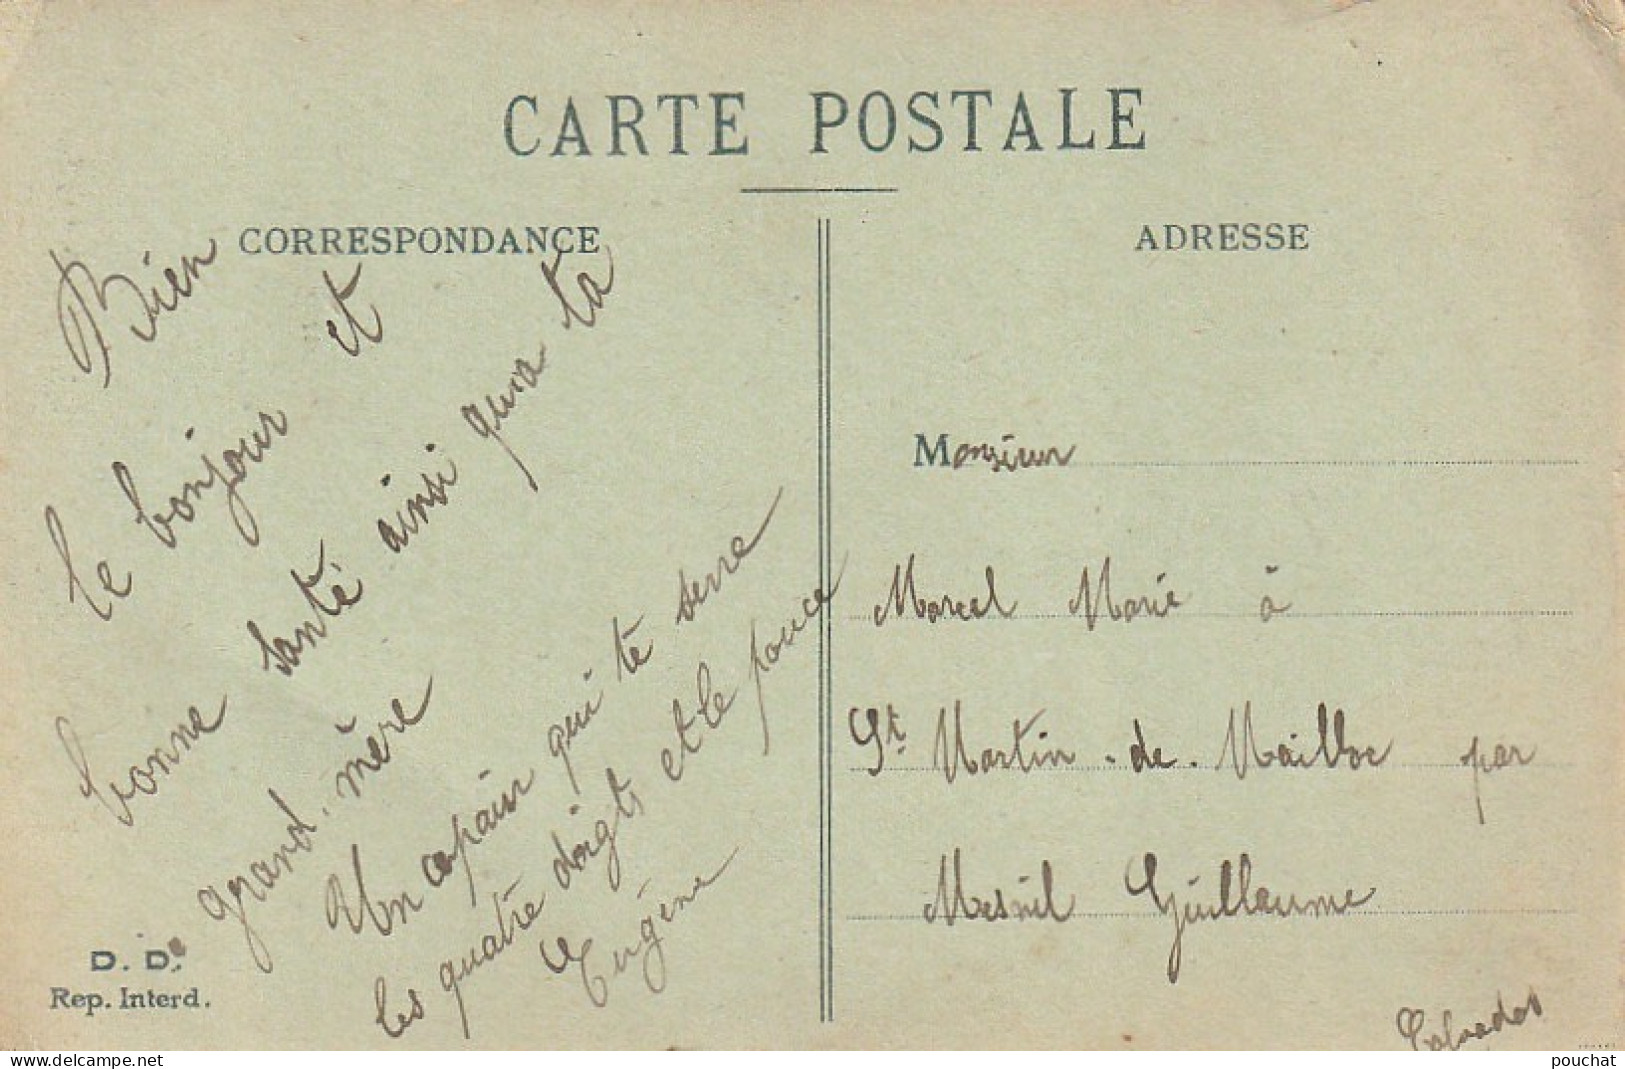 CARTE POSTALE
CORRESPONDANCE
ADRESSE
Bien
le bonjour et
bonne santé ainsi qu'a ta
grand-mère
Un copain qui te serre
les quatre doigts et le pouce
Eugène
Monsieur
Marcel Marie à
St Martin-de-Mailloc par
Mesnil Guillaume
Calvados
D. D.
Rep. Interd.
www.delcampe.net
pouchat